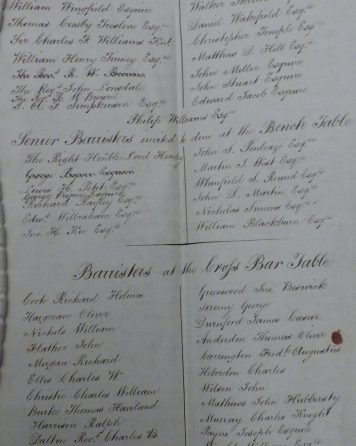 William Wingfield Esquire
Thomas Crosby Treslove Esq.re
Sir Charles F. Williams Knt.
William Henry Tinney Esq.re
The Rev.d John Lonsdale
J. A. F. Simpkinson Esq.re
Walker
Daniel Wakefield Esq.re
Christopher Temple Esq.re
Matthew D. Hill Esq.re
John Miller Esquire
John Stuart Esquire
Edward Jacob Esquire
Philip Williams Esq.re
Senior Barristers invited to dine at the Bench Table
The Right Honble Lord Henley
George Esquire
Lewis H. Petit Esq.re
George Esquire
Richard Rapley Esq.re
Edw.d Wilbraham Esq.re
Jno. H. Kör Esq.re
John S. Esq.re
Martin J. West Esq.re
Whanfield S. Round Esq.re
John L. Martin Esq.re
Nicholas Simons Esq.re
William Blackburn Esq.re
Barristers at the Cross Bar Table
Cook Richard Holmes
Hargreave Oliver
Nichols William
Flather John
Morgan Richard
Ellis Charles W
Christie Charles William
Burke Thomas Haviland
Harrison Ralph
Dalton Rev.d Charles B.
Greenwood Jno. Beswick
Jeremy George
Durnford James Caesar
Anderdon Thomas Oliver
Carington Fred.k Augustus
Heberden Charles
Wilson John
Mathews John Hubbersty
Murray Charles Knight
Payne Joseph Esquire